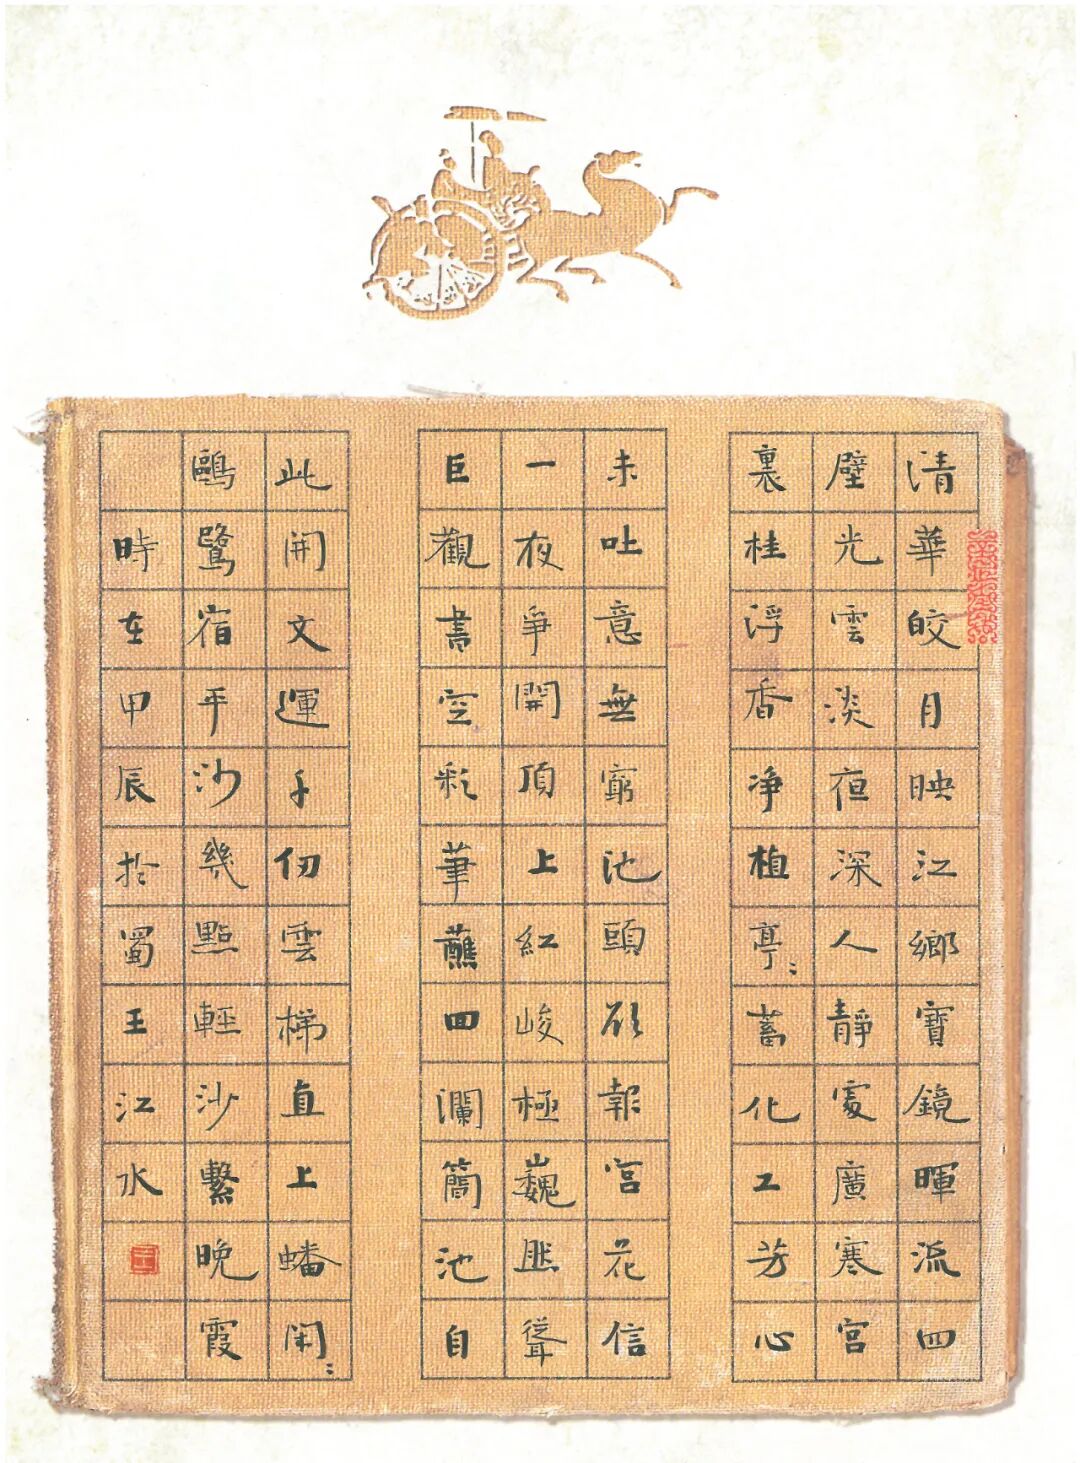 清華皎月映江鄉寶鏡暉流四
壁光雲淡夜深人靜處廣寒宮
裏桂浮香净植亭〻蓄化工芳心
未吐意無窮池頭欲報宮花信
一夜爭開頂上紅峻極巍聳
巨觀書空彩筆蘸四瀾簡池自
此開文運千仞雲梯直上蟠閑〻
鷗鷺宿平沙幾點輕沙繫晚霞
時在甲辰於蜀王江水